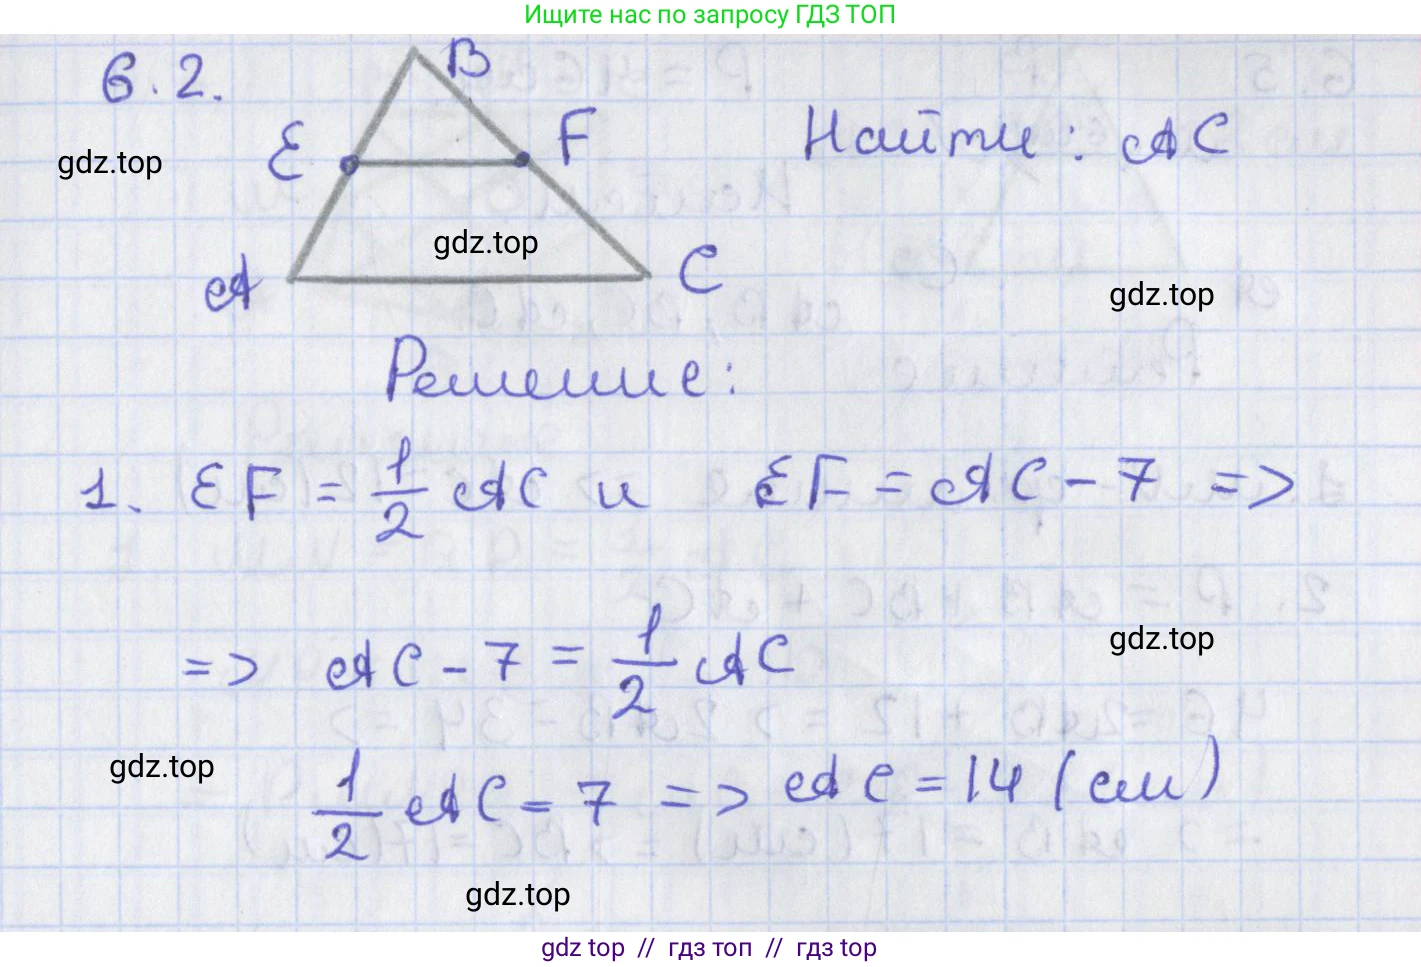 Ищите нас по запросу ГДЗ ТОП
6.2.
B
E
F
Найти: AC
gdz.top
gdz.top
A
C
gdz.top
Решение:
1. EF = 1/2 AC и EF = AC - 7 =>
=> AC - 7 = 1/2 AC
gdz.top
gdz.top
1/2 AC = 7 => AC = 14 (см)
gdz.top
gdz top // гдз топ // гдз top